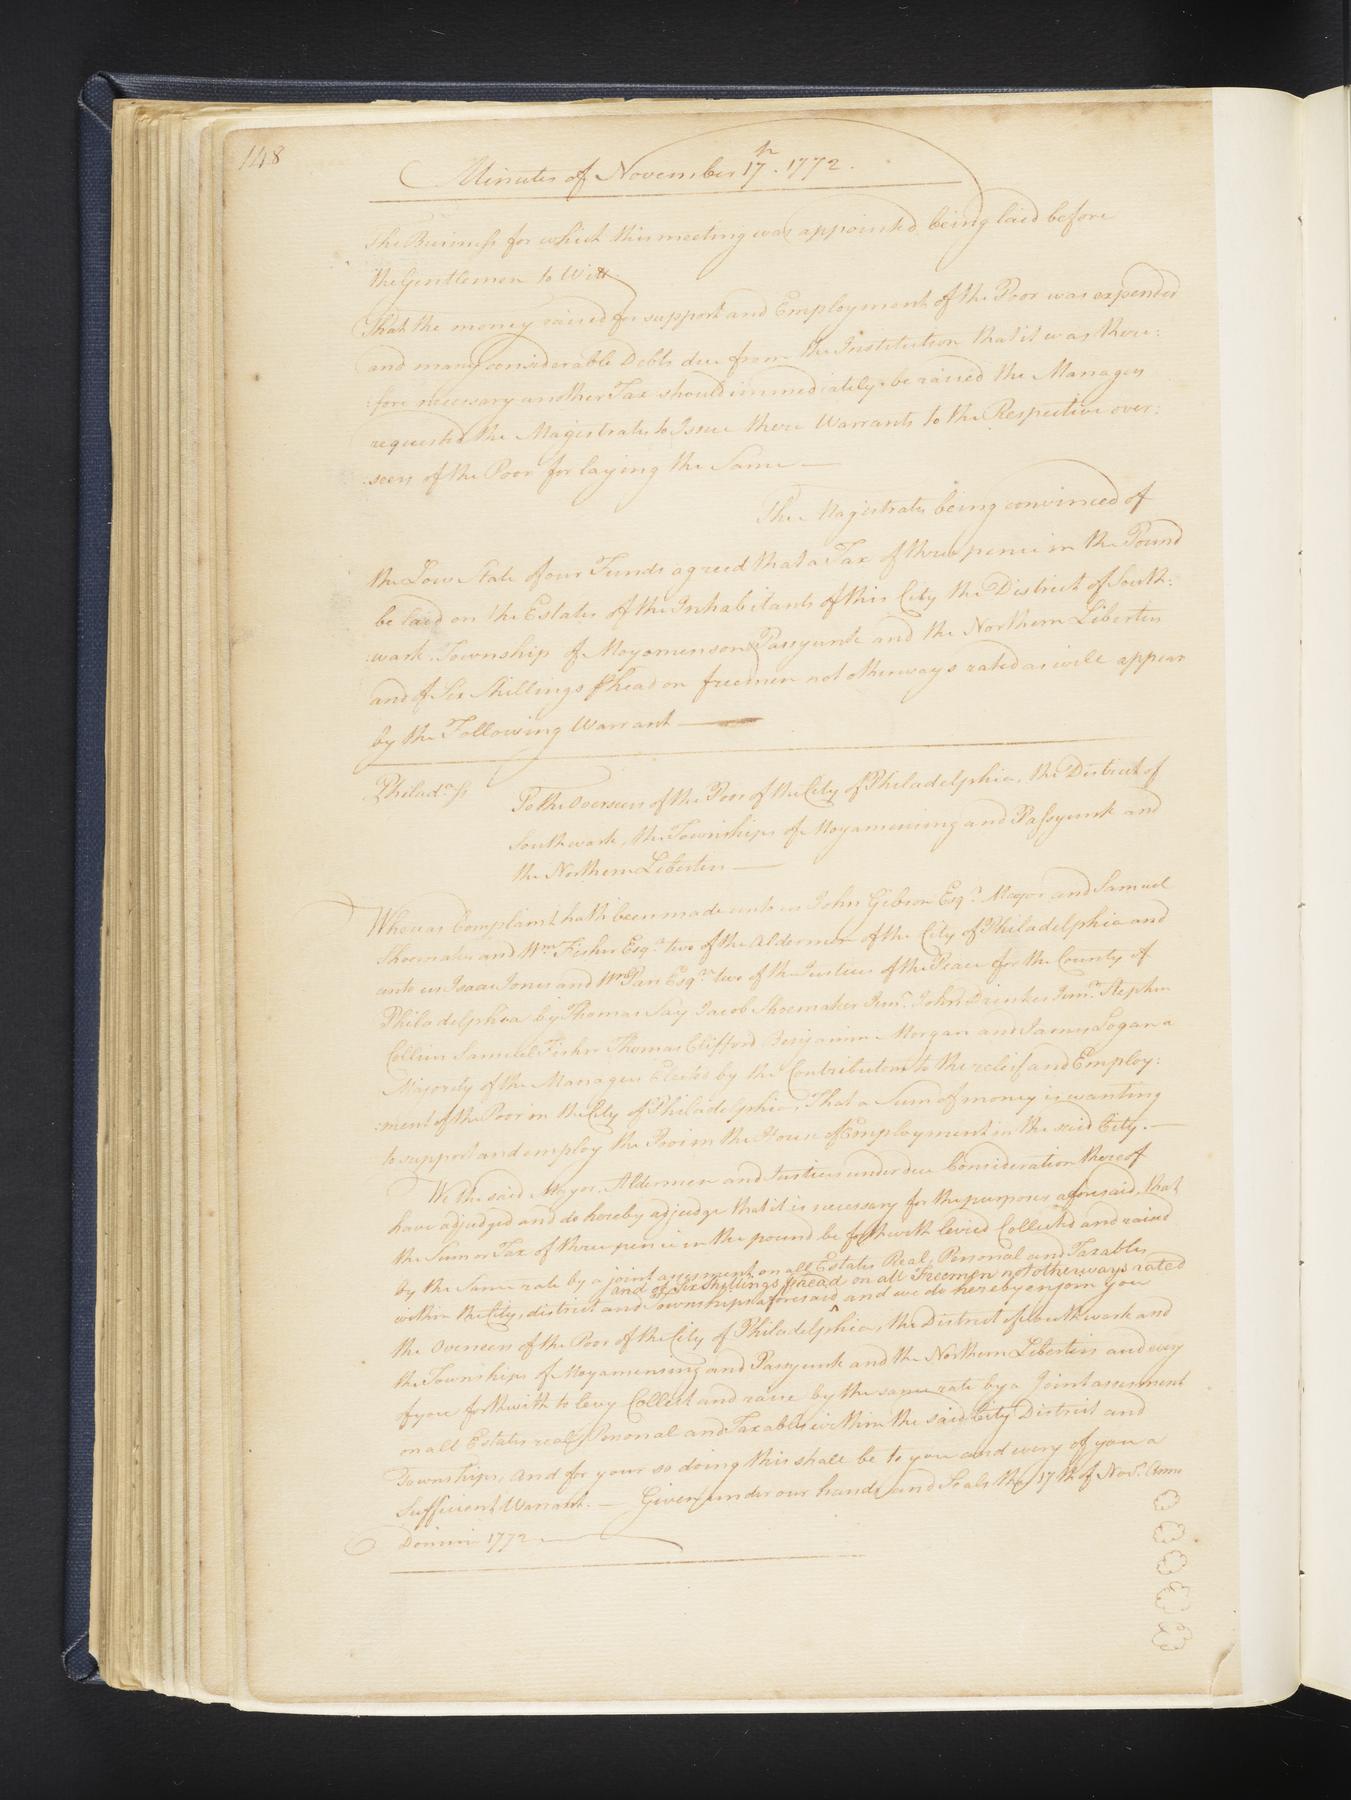 148
Minutes of November 17th. 1772.
The Business for which this meeting was appointed being laid before
the Gentlemen to Witt
That the money raised for support and Employment of the Poor was expended
and many considerable Debts due from the Institution that it was there:
:fore necessary another Tax should immediately be raised the Managers
requested the Magistrates to Issue there Warrants to the Respective over:
:seers of the Poor for laying the Same —
The Magistrates being convinced of
the Low State of our Funds agreed that a Tax of three pence in the Pound
be laid on the Estates of the Inhabitants of this City the District of South:
:wark Township of Moyomenson Passyunk and the Northern Liberties
and of Six Shillings ⅌ head on freemen not otherways rated as will appear
by the Following Warrant —
Philada. ss
To the Overseers of the Poor of the City of Philadelphia, the District of
Southwark, the Townships of Moyamensing and Passyunk and
the Northern Liberties —
Whereas Complaint hath been made unto us John Gibson Esqr. Mayor and Samuel
Shoemaker and Wm. Fisher Esqr. two of the Aldermen of the City of Philadelphia and
unto us Isaac Jones and Wm Parr Esqrs. two of the Justices of the Peace for the County of
Philadelphia by Thomas Say Jacob Shoemaker Junr. John Drinker Junr. Stephen
Collins Samuel Fisher Thomas Clifford Benjamin Morgan and James Logan a
Majority of the Managers Elected by the Contributors to the relief and Employ:
:ment of the Poor in the City of Philadelphia, That a Sum of money is wanting
to support and employ the Poor in the House of Employment in the said City. —
We the said Mayor, Aldermen and Justices under due Consideration thereof
have adjudged and do hereby adjudge that it is necessary for the purposes aforesaid, that
the Sum or Tax of three pence in the pound be forthwith levied Collected and raised
by the Same rate by a joint assesment on all Estates Real, Personal and Taxables
and of Six Shillings ⅌ head on all Freemen not otherways rated
within the City, district and Townships aforesaid ^ and we do hereby enjoin you
the Overseers of the Poor of the City of Philadelphia, the District of Southwark and
the Townships of Moyamensing and Passyunk and the Northern Liberties and every
of you forthwith to levy Collect and raise by the same rate by a Joint assesment
on all Estates real, Personal and Taxables within the said City District and
Townships, and for your so doing this shall be to you and every of you a
Sufficient Warrant. — Given under our hands and Seals the 17th of Novr. Anno
Domini 1772